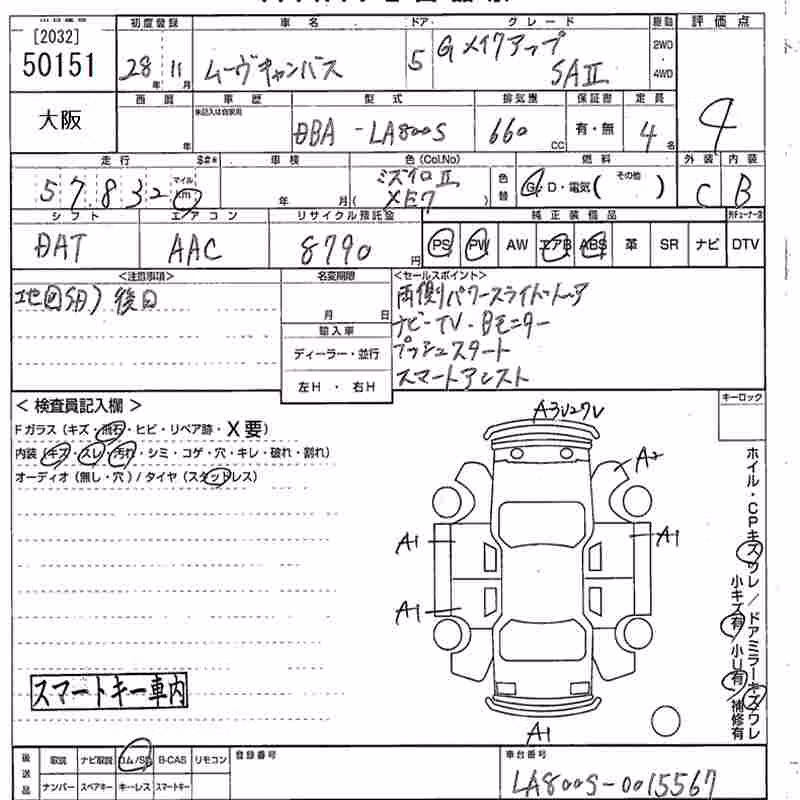 [2032]
50151
初度登録 車名 ドア グレード 駆動 評価点
28年 11月 ムーヴキャンバス 5 Gメイクアップ SAⅡ 2WD・4WD
大阪
西暦 車歴 型式 排気量 保証書 定員
年 DBA-LA800S 660 CC 有・無 4名 4
走行 車検 色(Col.No) 燃料 外装 内装
57832 マイル km 年 月 ミズイロⅡ ( XE7 ) 色替 G・D・電気( その他 ) C B
シフト エアコン リサイクル預託金 純正装備品
DAT AAC 8790円 PS PW AW エアB ABS 革 SR ナビ DTV
<注意事項> 名変期限 <セールスポイント>
後日
月 日
輸入車
ディーラー・並行
左H・右H
両側パワースライドドア
ナビ・TV・Bモニター
プッシュスタート
スマートアシスト
<検査員記入欄>
キーロック
Fガラス(キズ・飛石・ヒビ・リペア跡・X要)
内装(キズ・スレ・汚れ・シミ・コゲ・穴・キレ・破れ・割れ)
オーディオ(無し・穴)/タイヤ(スタッドレス)
A2
A1 A1
A1
A1
ホイル・CPキズワレ/ドアミラーキズワレ
小キズ有 小U有 補修有
スマートキー車内
後送品 取説 ナビ取説 B-CAS リモコン 登録番号 車台番号
ナンバー スペアキー キーレス スマートキー LA800S-0015567